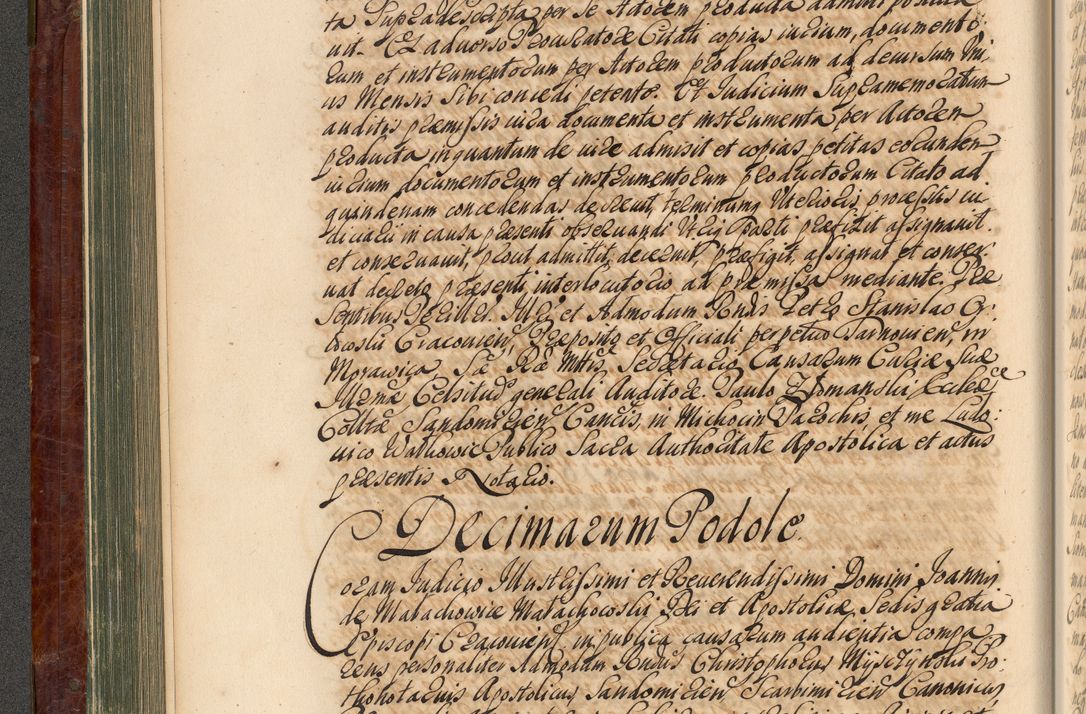 ta Supradescripta per se Actorem producta admitti postula
uit. Et aduerso Procuratore Citati copias iurium, documento:
rum et instrumentorum per Actorem productorum ad decursum hui,
us Mensis Sibi concedi petente. Et Judicium Supramemoratum
auditis præmissis iura documenta et instrumenta per Actorem
producta inquantum de iure admisit et copias petitas eorundem
iurium documentorum et instrumentorum productorum Citato ad
quindenam concedendas decreuit, terminumq Ulterioris processus iu
diciarii in causa præsenti obseruandi Utriq Parti præfixit assignauit
et conseruauit, prout admittit, decernit, præfigit, assignat et conser:
uat decreto præsenti interlocutorio ad præmissa mediante. Præ
sentibus Perill. Illri et Admodum Rndis Petro Stanislao Or:
łowski Cracovien, Præposito et Officiali perpetuo Tarnovien, in
Morawica Sæ Ræ Mttis Secretario Causarum Curiæ Suæ
Illrmæ Celsitud generali Auditore. Paulo Zdomanski Ecclæ
Collræ Sandomirien Cancis, in Michocin Parochis, et me Ludo:
uico Wałkowic Publico Sacra Authoritate Apostolica et actus
præsentis Notario.
Decimarum Podole.
Coram Judicio Illustrissimi et Reuerendissimi Domini Joannis
de Małachowice Małachowski Dei et Apostolicæ Sedis gratia
Episcopi Cracovien, in publica causarum audientia compa
rens personaliter Admodum Rndus Christophorus Myszynski Pro:
thonotarius Apostolicus Sandomirien Scarbimirien Canonicus